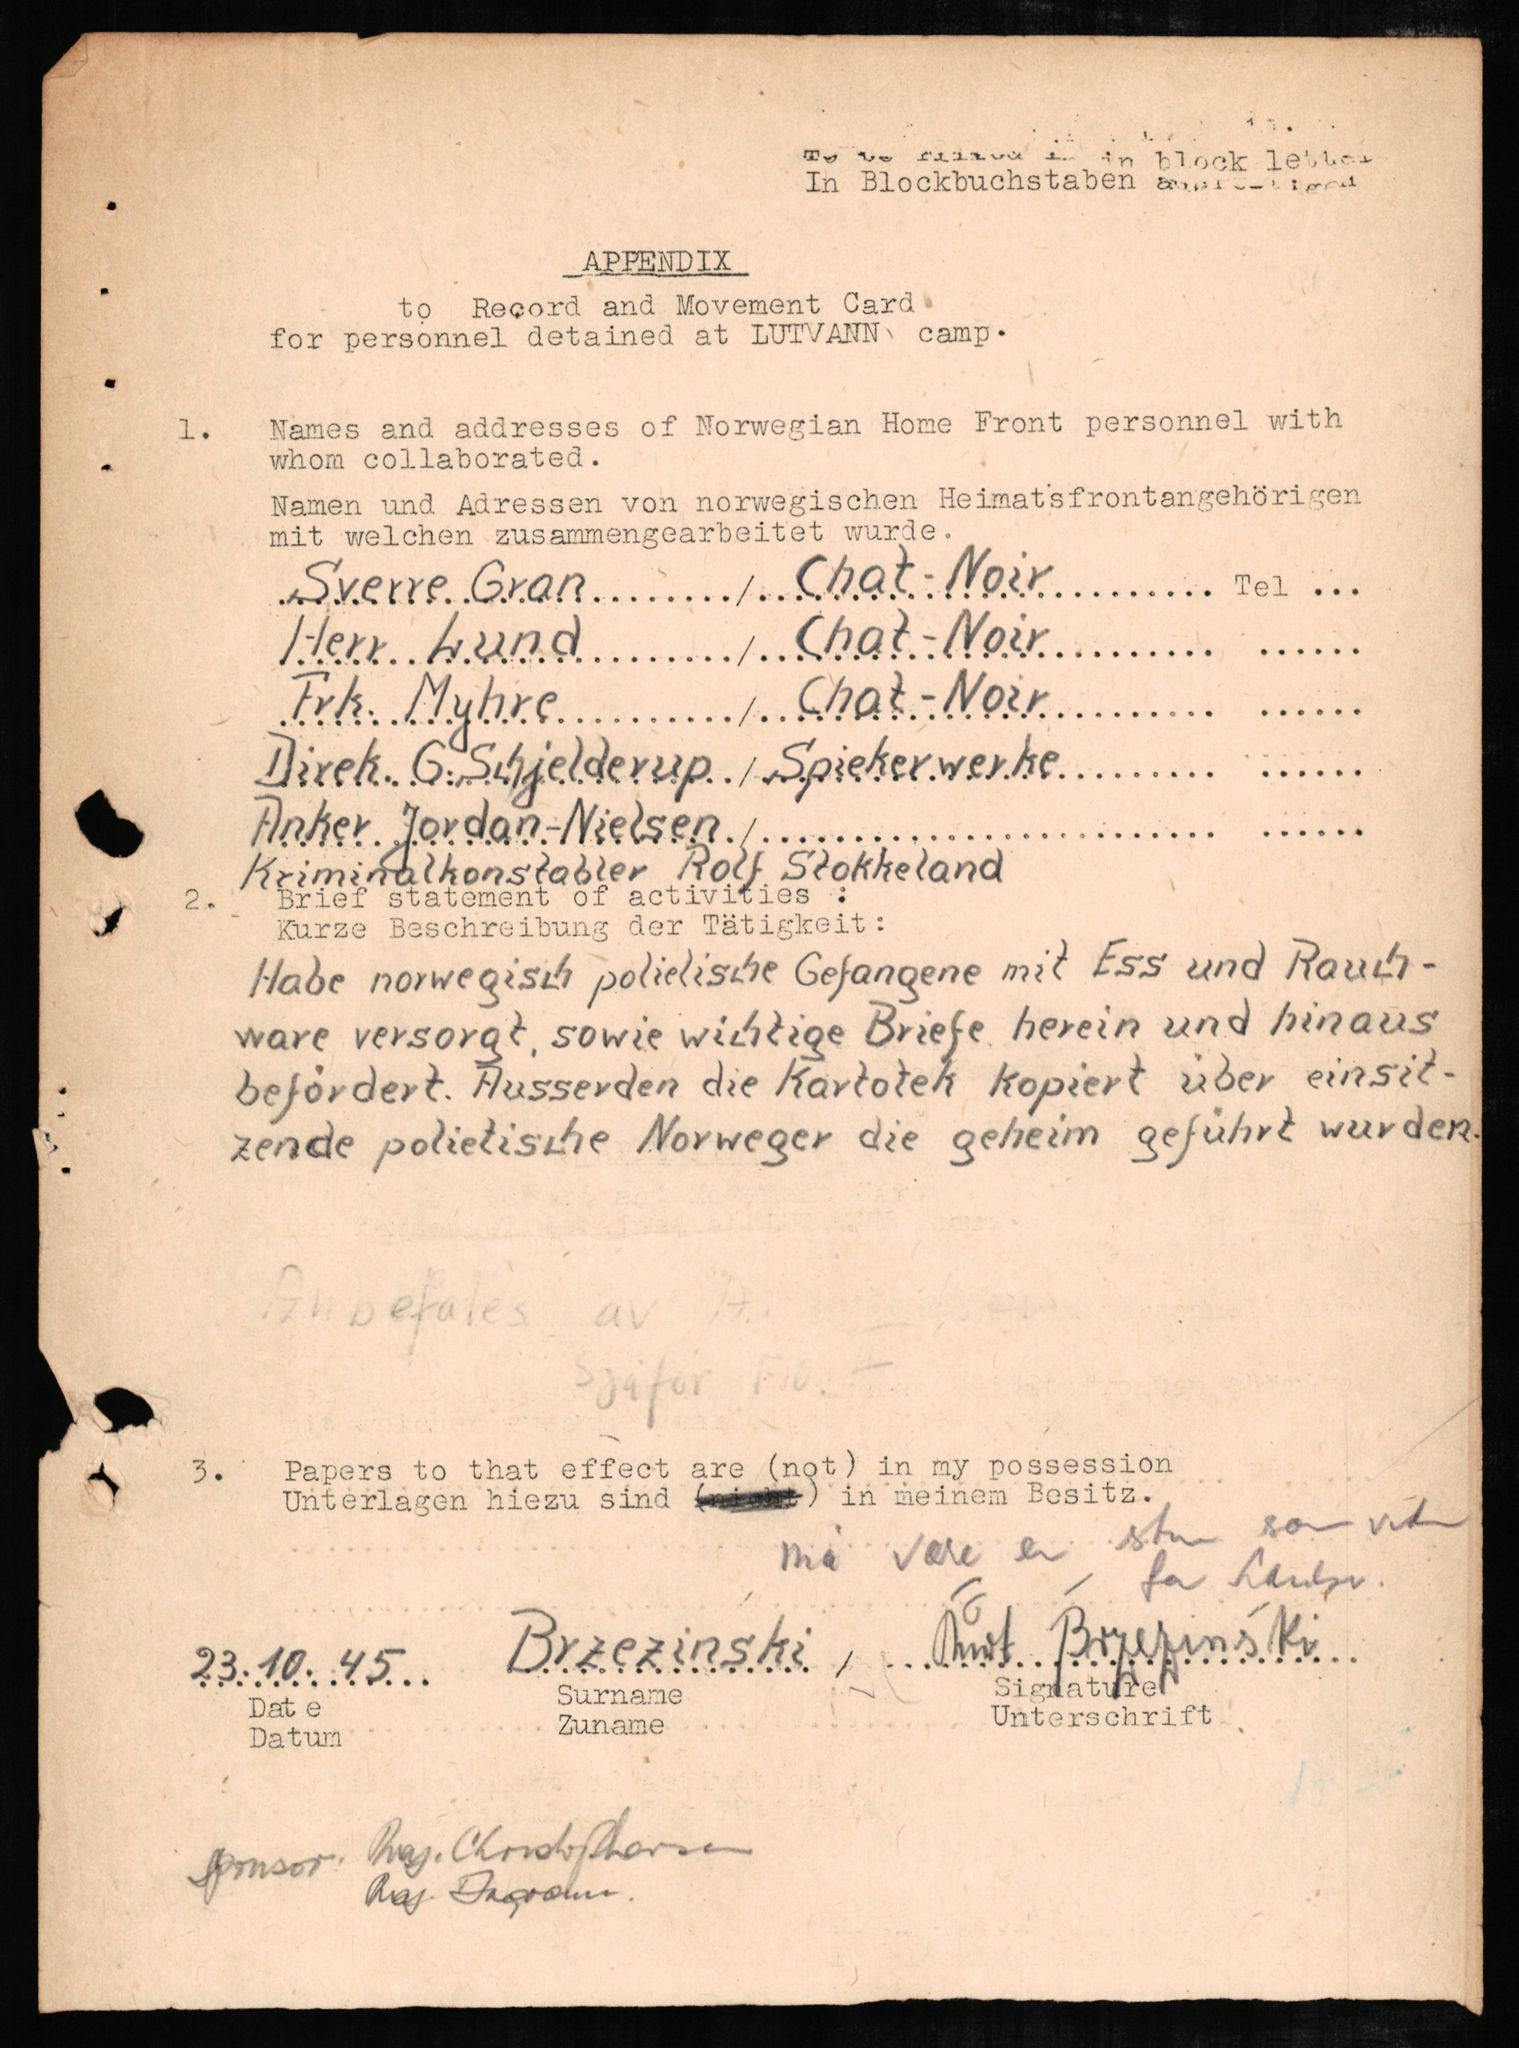 in block letter
In Blockbuchstaben
APPENDIX
to Record and Movement Card
for personnel detained at LUTVANN camp.
1. Names and addresses of Norwegian Home Front personnel with
whom collaborated.
Namen und Adressen von norwegischen Heimatsfrontangehörigen
mit welchen zusammengearbeitet wurde.
Sverre Gran ........./.. Chat-Noir ........ Tel ...
Herr Lund ........./.. Chat-Noir ........ ......
Frk. Myhre ........./.. Chat-Noir ........ ......
Direk. G. Schjelderup ./. Spiekerwerke ........ ......
Anker Jordan-Nielsen ./........................ ......
Kriminalkonstabler Rolf Stokkeland
2. Brief statement of activities :
Kurze Beschreibung der Tätigkeit:
Habe norwegisch polietische Gefangene mit Ess und Rauch-
ware versorgt, sowie wichtige Briefe herein und hinaus
befördert. Ausserden die Kartotek kopiert über einsit-
zende polietische Norweger die geheim geführt wurden.
Anbefales av A.
Sjåfør
3. Papers to that effect are (not) in my possession
Unterlagen hiezu sind (nicht) in meinem Besitz.
må være en som
for
23.10.45... Brzezinski, Kurt Brzezinski
Date Surname Signature
Datum Zuname Unterschrift
Sponsor: Christophersen